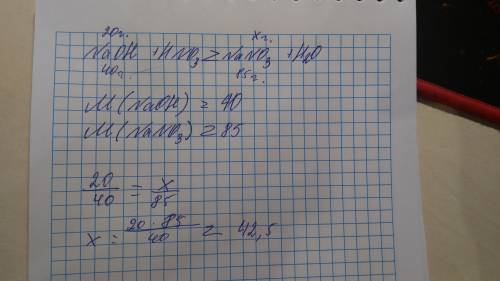 20г. xг.
NaOH + HNO₃ = NaNO₃ + H₂O
40г. 85г.
M(NaOH) = 40
M(NaNO₃) = 85
20/40 = x/85
x = 20·85/40 = 42,5